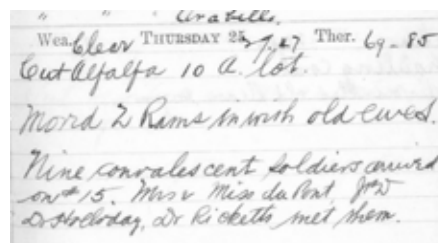 " " Arabells.
Wea. Clear THURSDAY 25 29.27 Ther. 69-85
Cut Alfalfa 10 A. lot.
Moved 2 Rams in with old ewes.
Nine convalescent soldiers arrived
on # 15. Mrs & Miss du Pont,
Dr Holloday, Dr Ricketts met them.